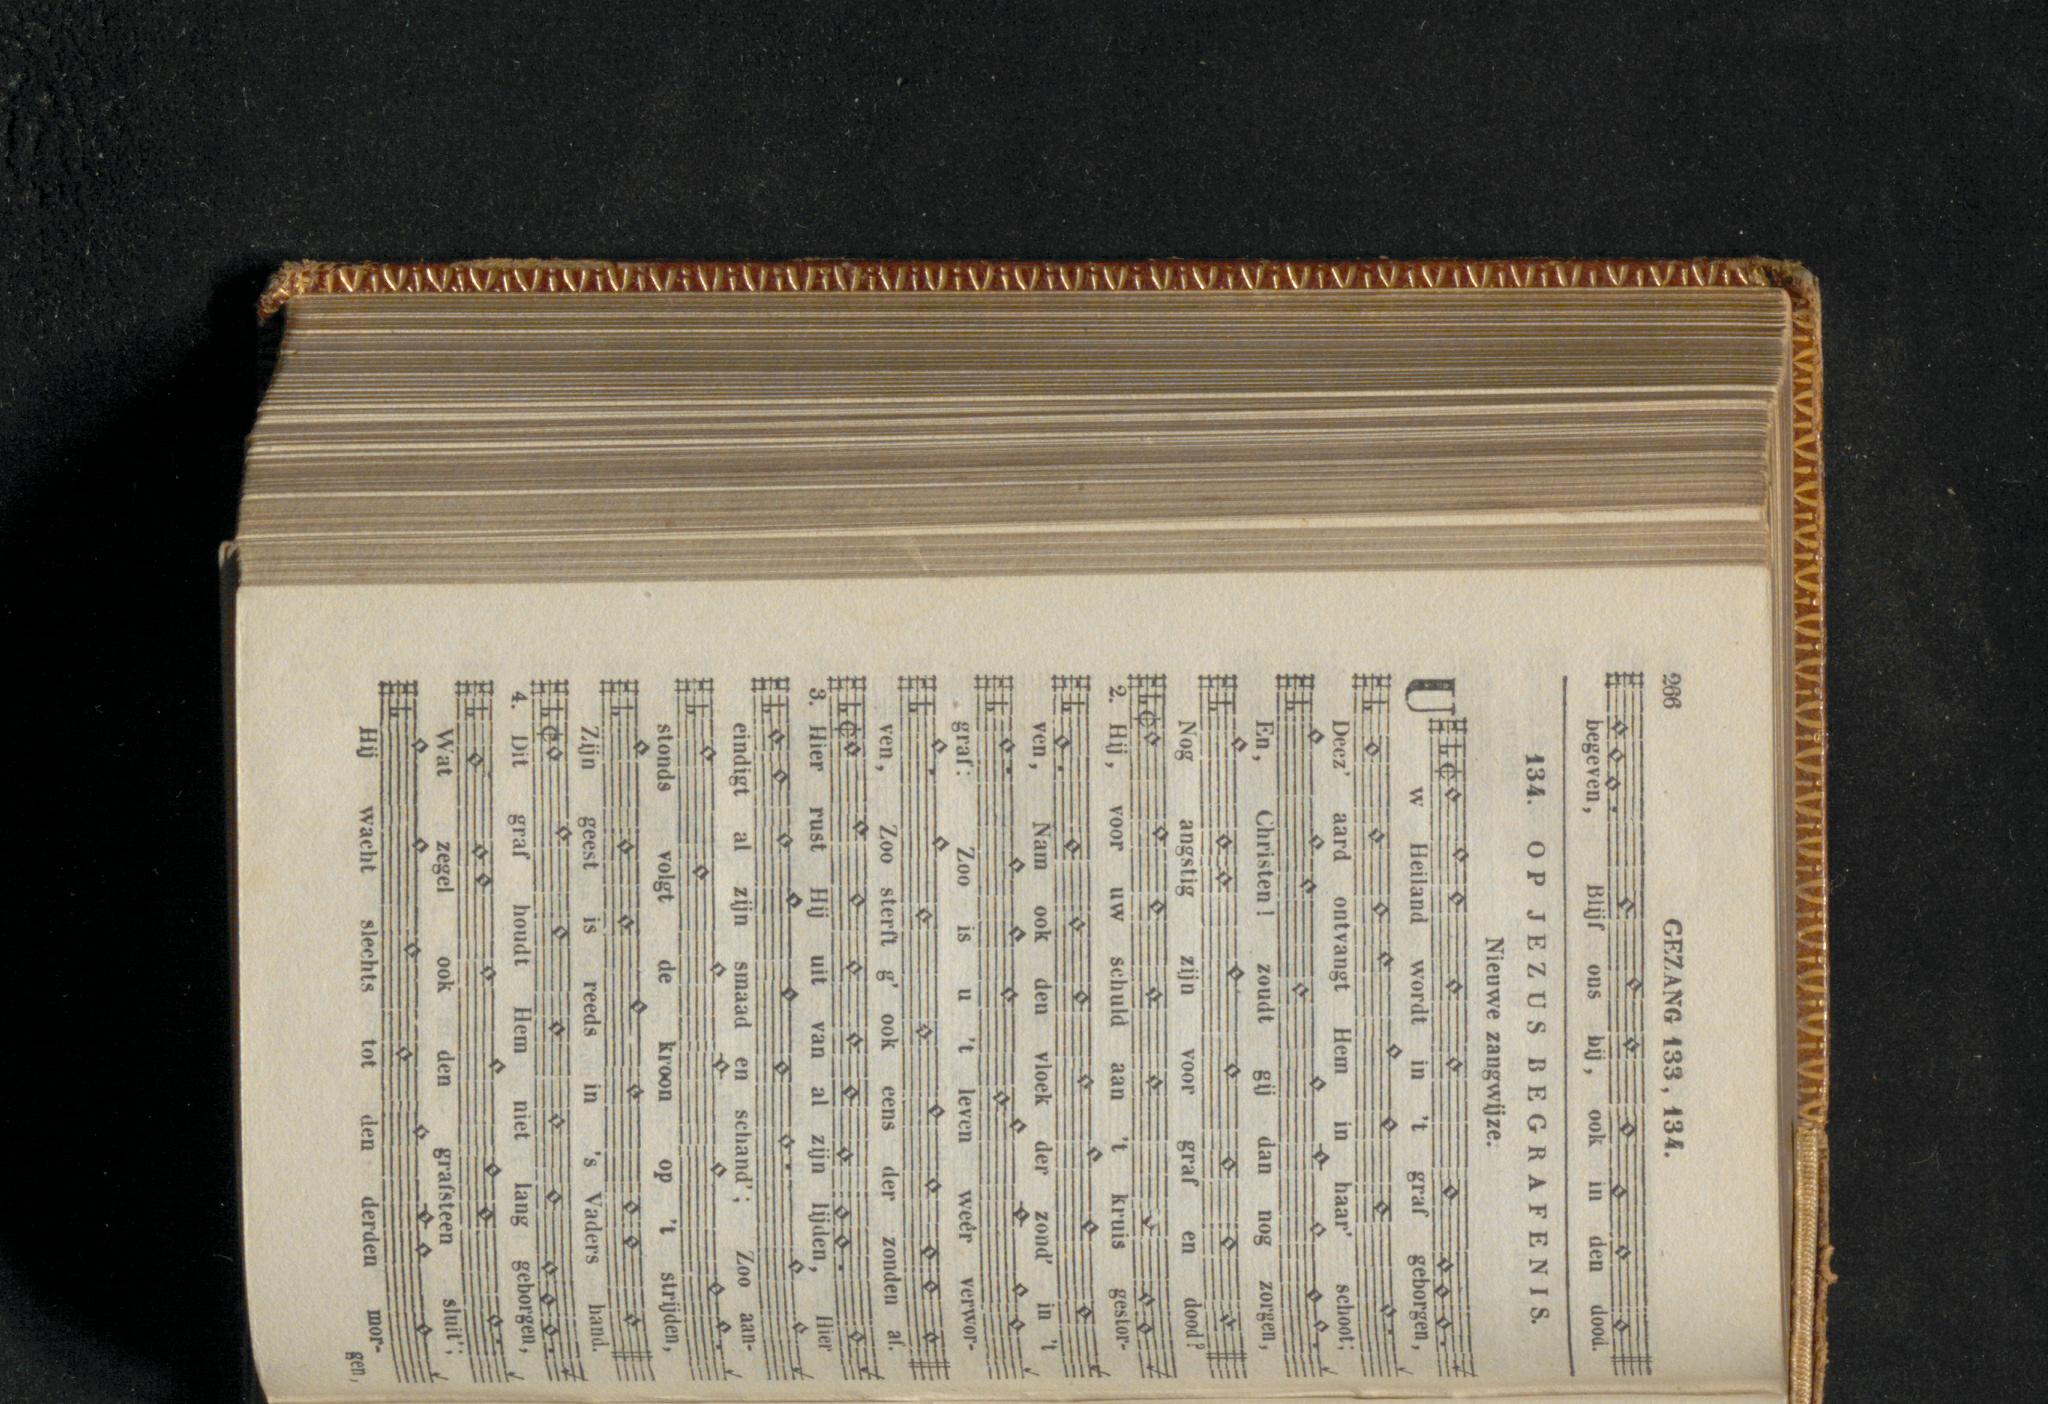 266 GEZANG 133, 134.
begeven, Blijf ons bij, ook in den dood.
134. OP JEZUS BEGRAFENIS.
Nieuwe zangwijze.
Uw Heiland wordt in 't graf geborgen,
Deez' aard ontvangt Hem in haar' schoot;
En, Christen! zoudt gij dan nog zorgen,
Nog angstig zijn voor graf en dood?
2. Hij, voor uw schuld aan 't kruis gestor-
ven, Nam ook den vloek der zond' in 't
graf: Zoo is u 't leven weêr verwor-
ven, Zoo sterft g' ook eens der zonden af.
3. Hier rust Hij uit van al zijn lijden, Hier
eindigt al zijn smaad en schand'; Zoo aan-
stonds volgt de kroon op 't strijden,
Zijn geest is reeds in 's Vaders hand.
4. Dit graf houdt Hem niet lang geborgen,
Wat zegel ook den grafsteen sluit';
Hij wacht slechts tot den derden mor-
gen,